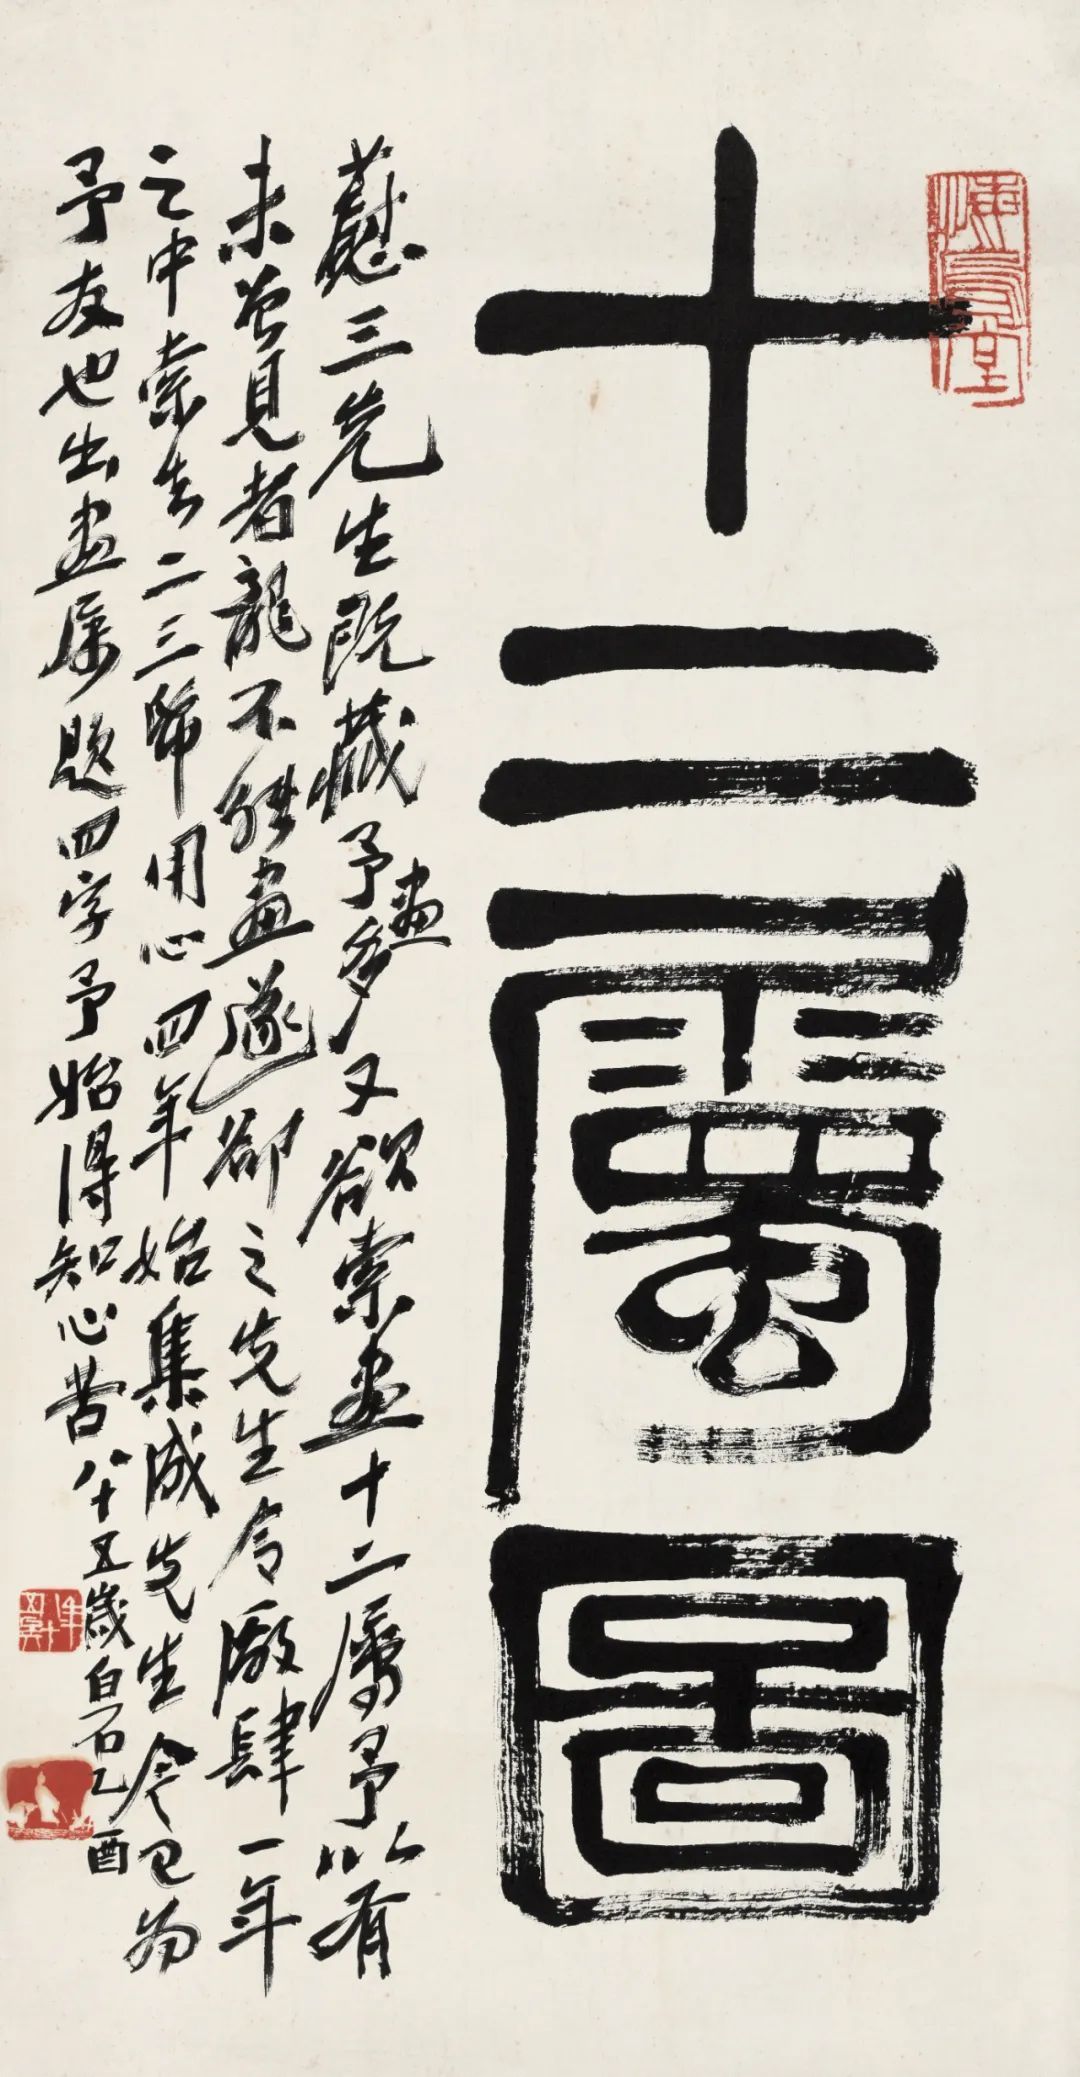 悔烏堂
十二屬圖
慰三先生既藏予畫多又欲索畫十二屬予以有
未曾見者龍不能畫遂卻之先生令廠肆一年
之中索去二三用心四年始集成先生今已為
予友也出畫屬題四字予始得知心苦八十五歲白石乙酉